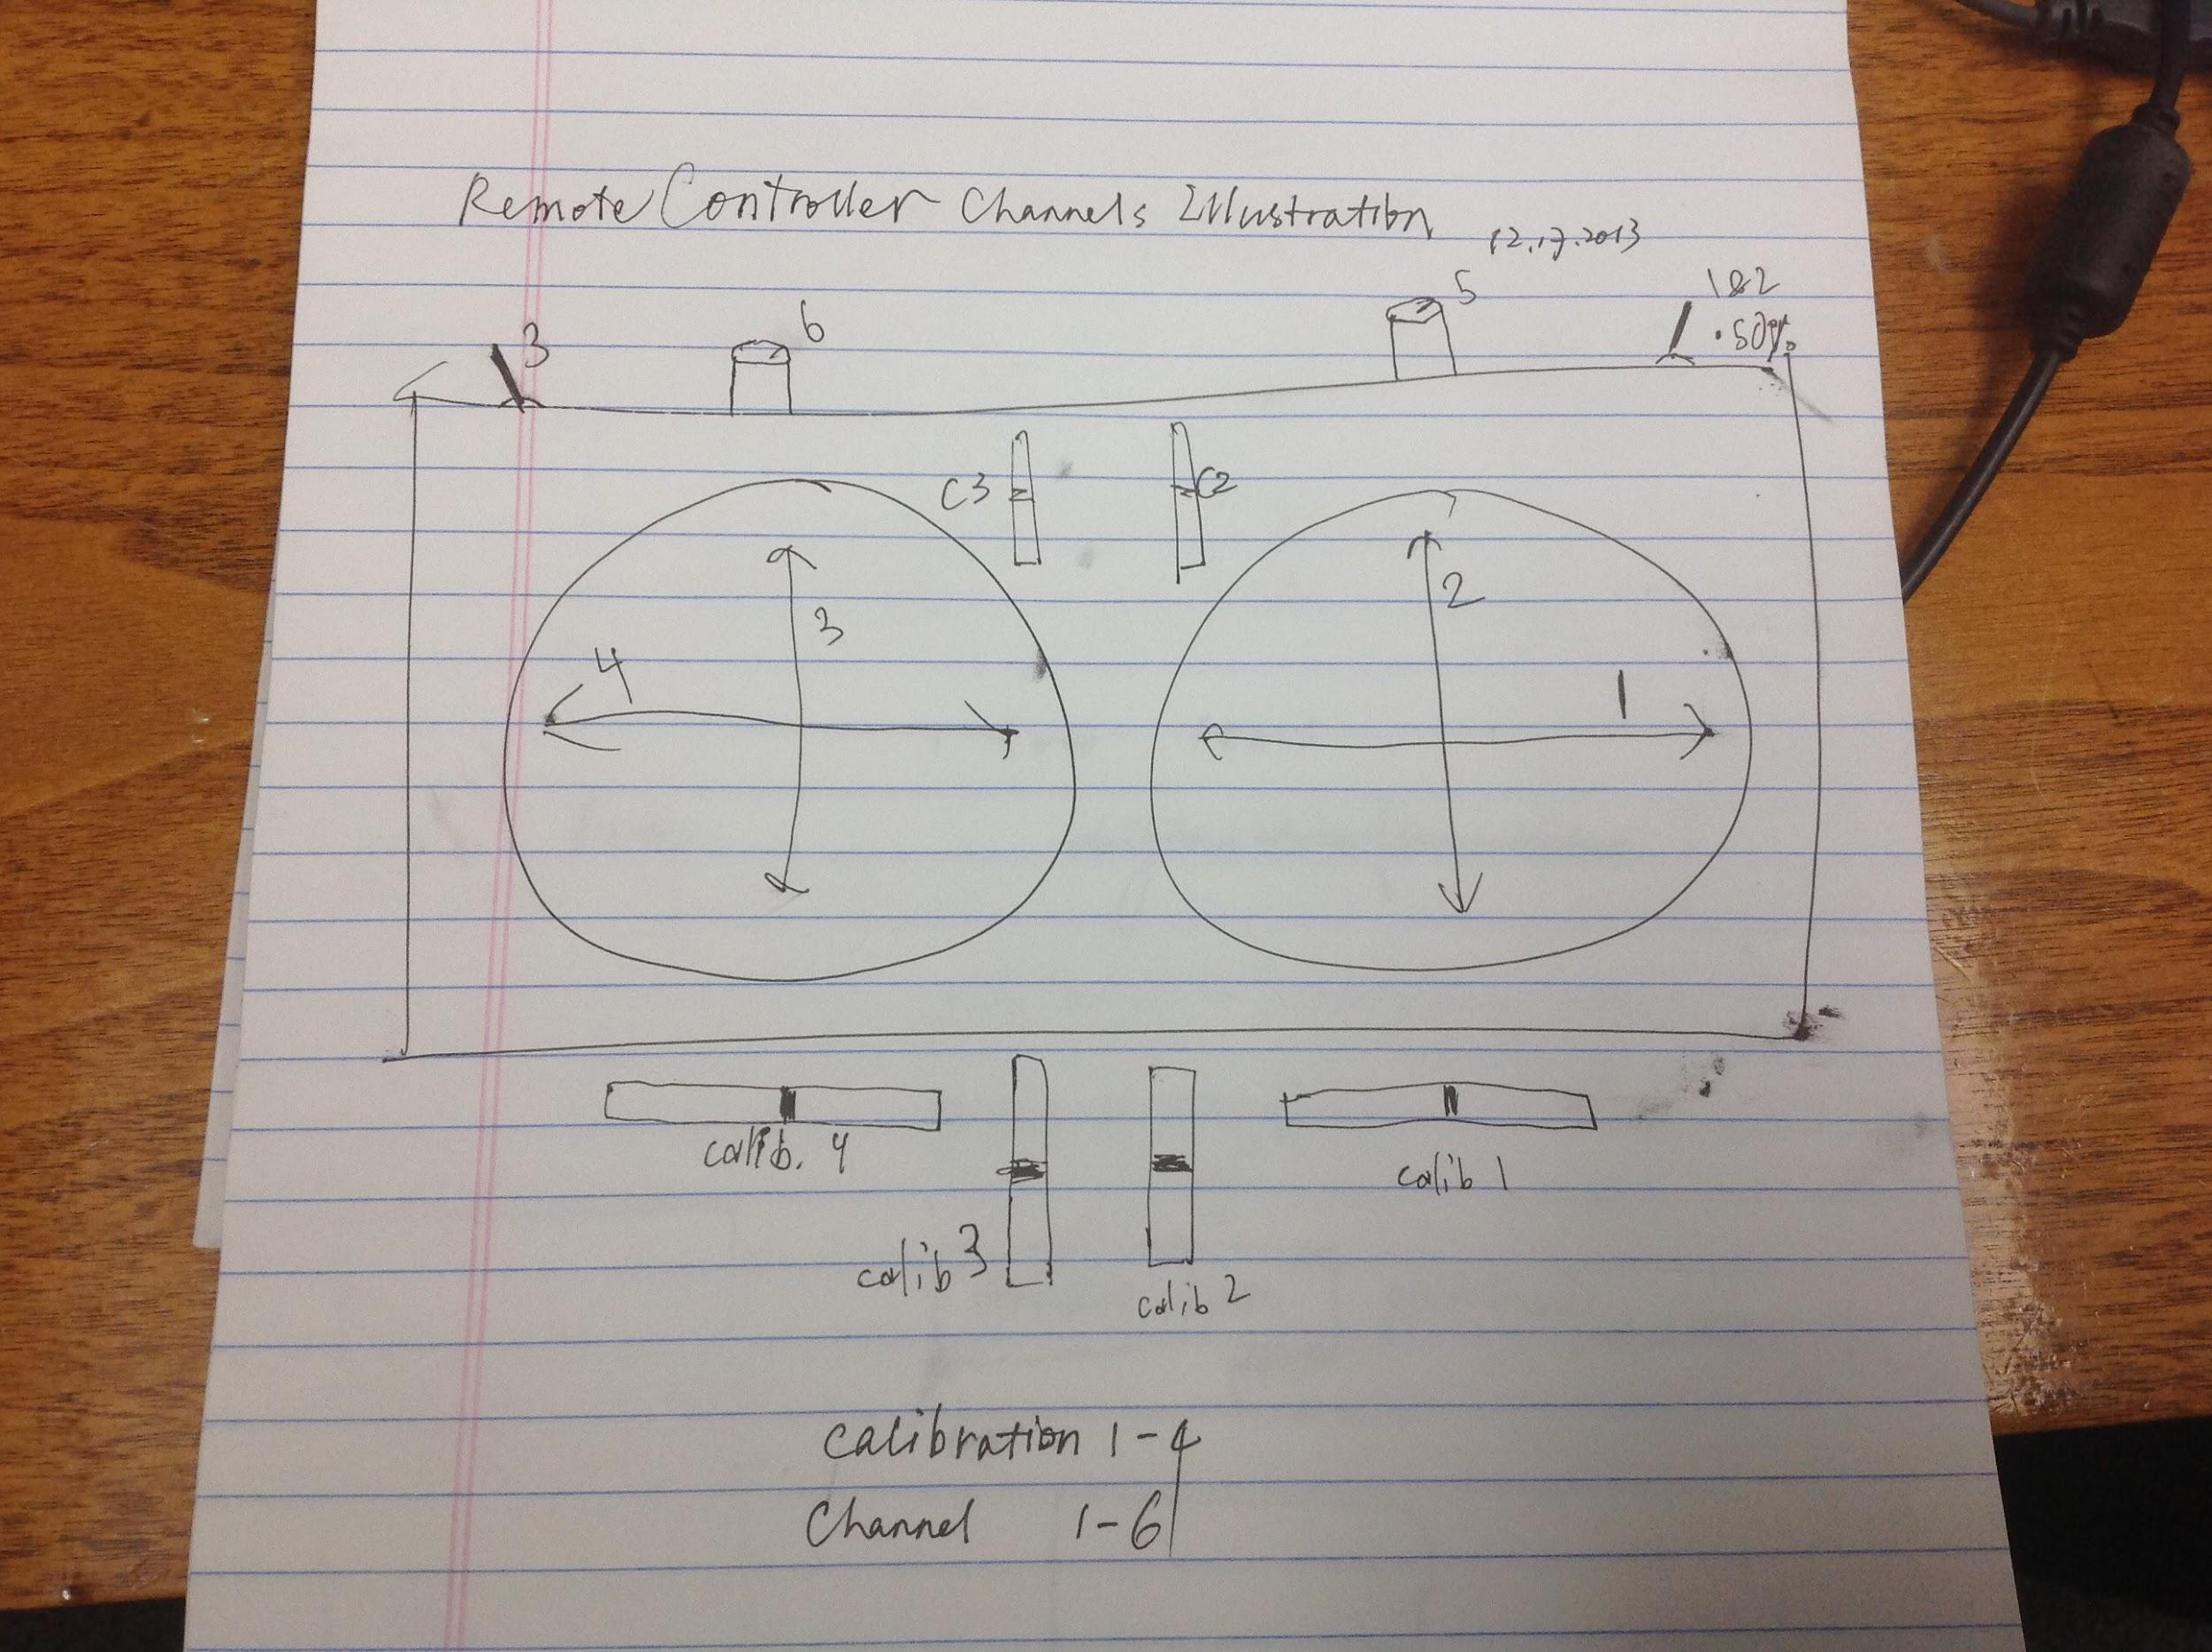 Remote Controller Channels Illustration
12.17.2013
3
6
5
1&2
.50%
C3
C2
3
4
2
1
calib. 4
calib 1
calib 3
calib 2
Calibration 1-4
Channel 1-6